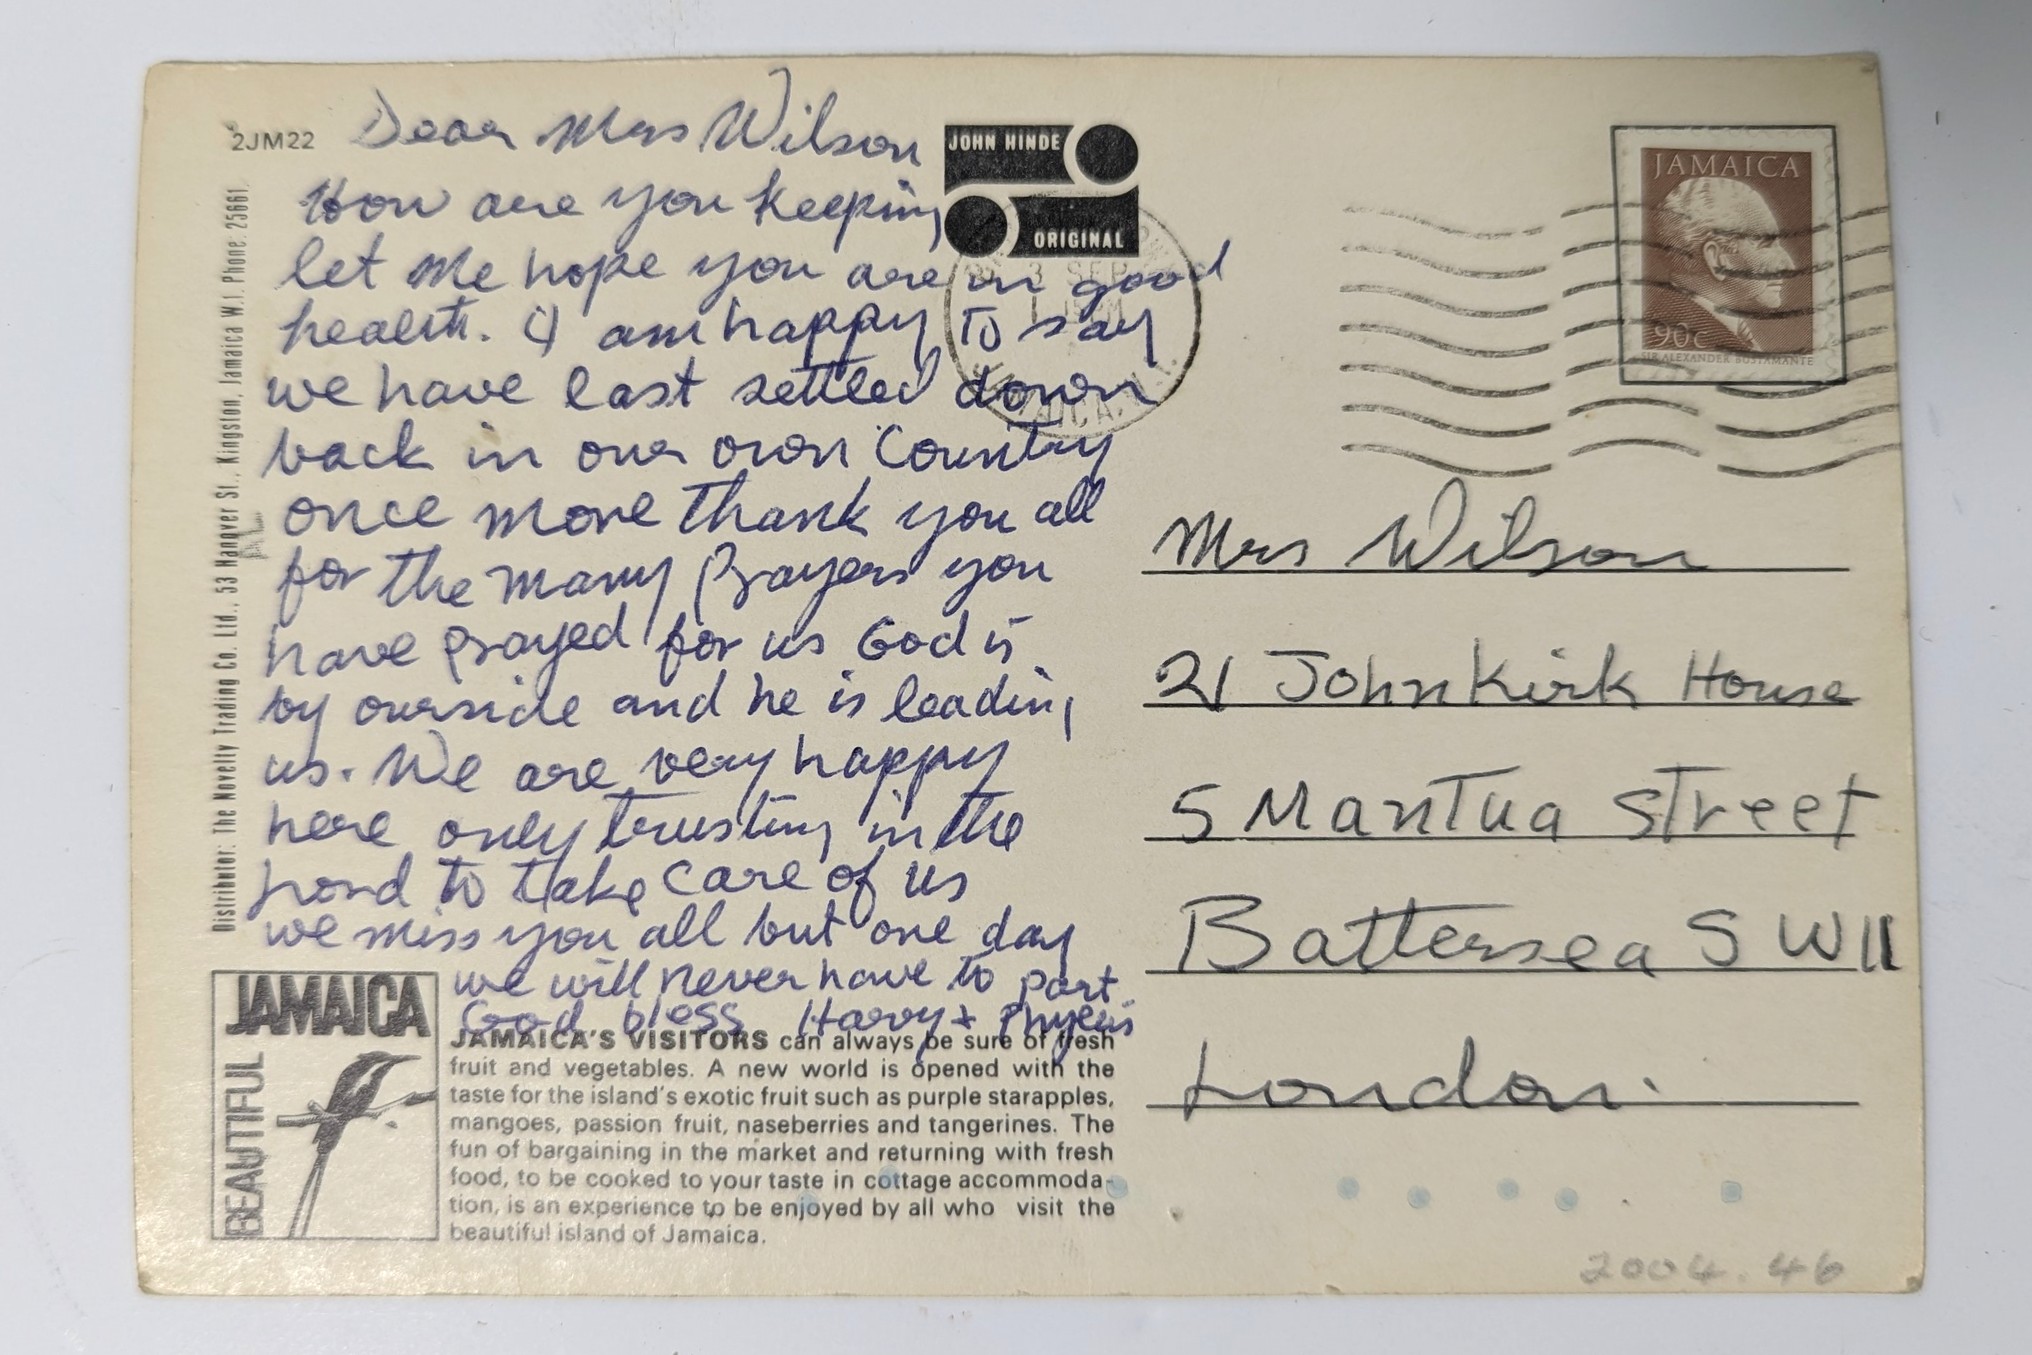 2JM22
Dear Mrs Wilson
How are you keeping
let me hope you are in good
health. I am happy to say
we have last settled down
back in our own Country
once more thank you all
for the many Prayers you
have prayed for us God is
by ourside and he is leading
us. We are very happy
here only trusting in the
Lord to take care of us
we miss you all but one day
we will never have to part.
God bless Harry + Phyllis
JOHN HINDE
ORIGINAL
3 SEP
JAMAICA
90c
SIR ALEXANDER BUSTAMANTE
Mrs Wilson
21 John Kirk House
5 Mantua Street
Battersea SW11
London.
Distributor: The Novelty Trading Co. Ltd., 53 Hanover St., Kingston, Jamaica W.I. Phone. 25661.
JAMAICA
BEAUTIFUL
JAMAICA'S VISITORS can always be sure of fresh
fruit and vegetables. A new world is opened with the
taste for the island's exotic fruit such as purple starapples,
mangoes, passion fruit, naseberries and tangerines. The
fun of bargaining in the market and returning with fresh
food, to be cooked to your taste in cottage accommoda-
tion, is an experience to be enjoyed by all who visit the
beautiful island of Jamaica.
2004.46